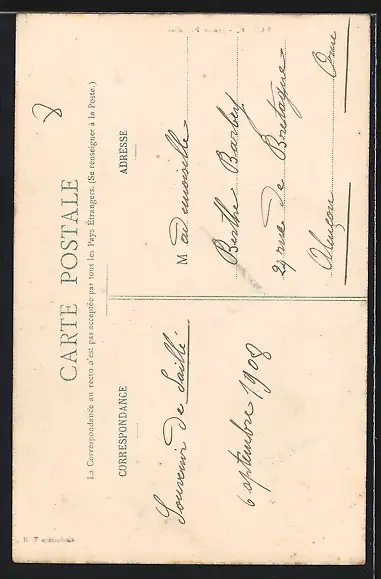 CARTE POSTALE
La Correspondance au recto n'est pas acceptée par tous les Pays Étrangers. (Se renseigner à la Poste.)
CORRESPONDANCE
ADRESSE
Souvenir de Saillé
6 septembre 1908
Mademoiselle
Berthe Barbey
29 rue de Bretagne
Alençon Orne